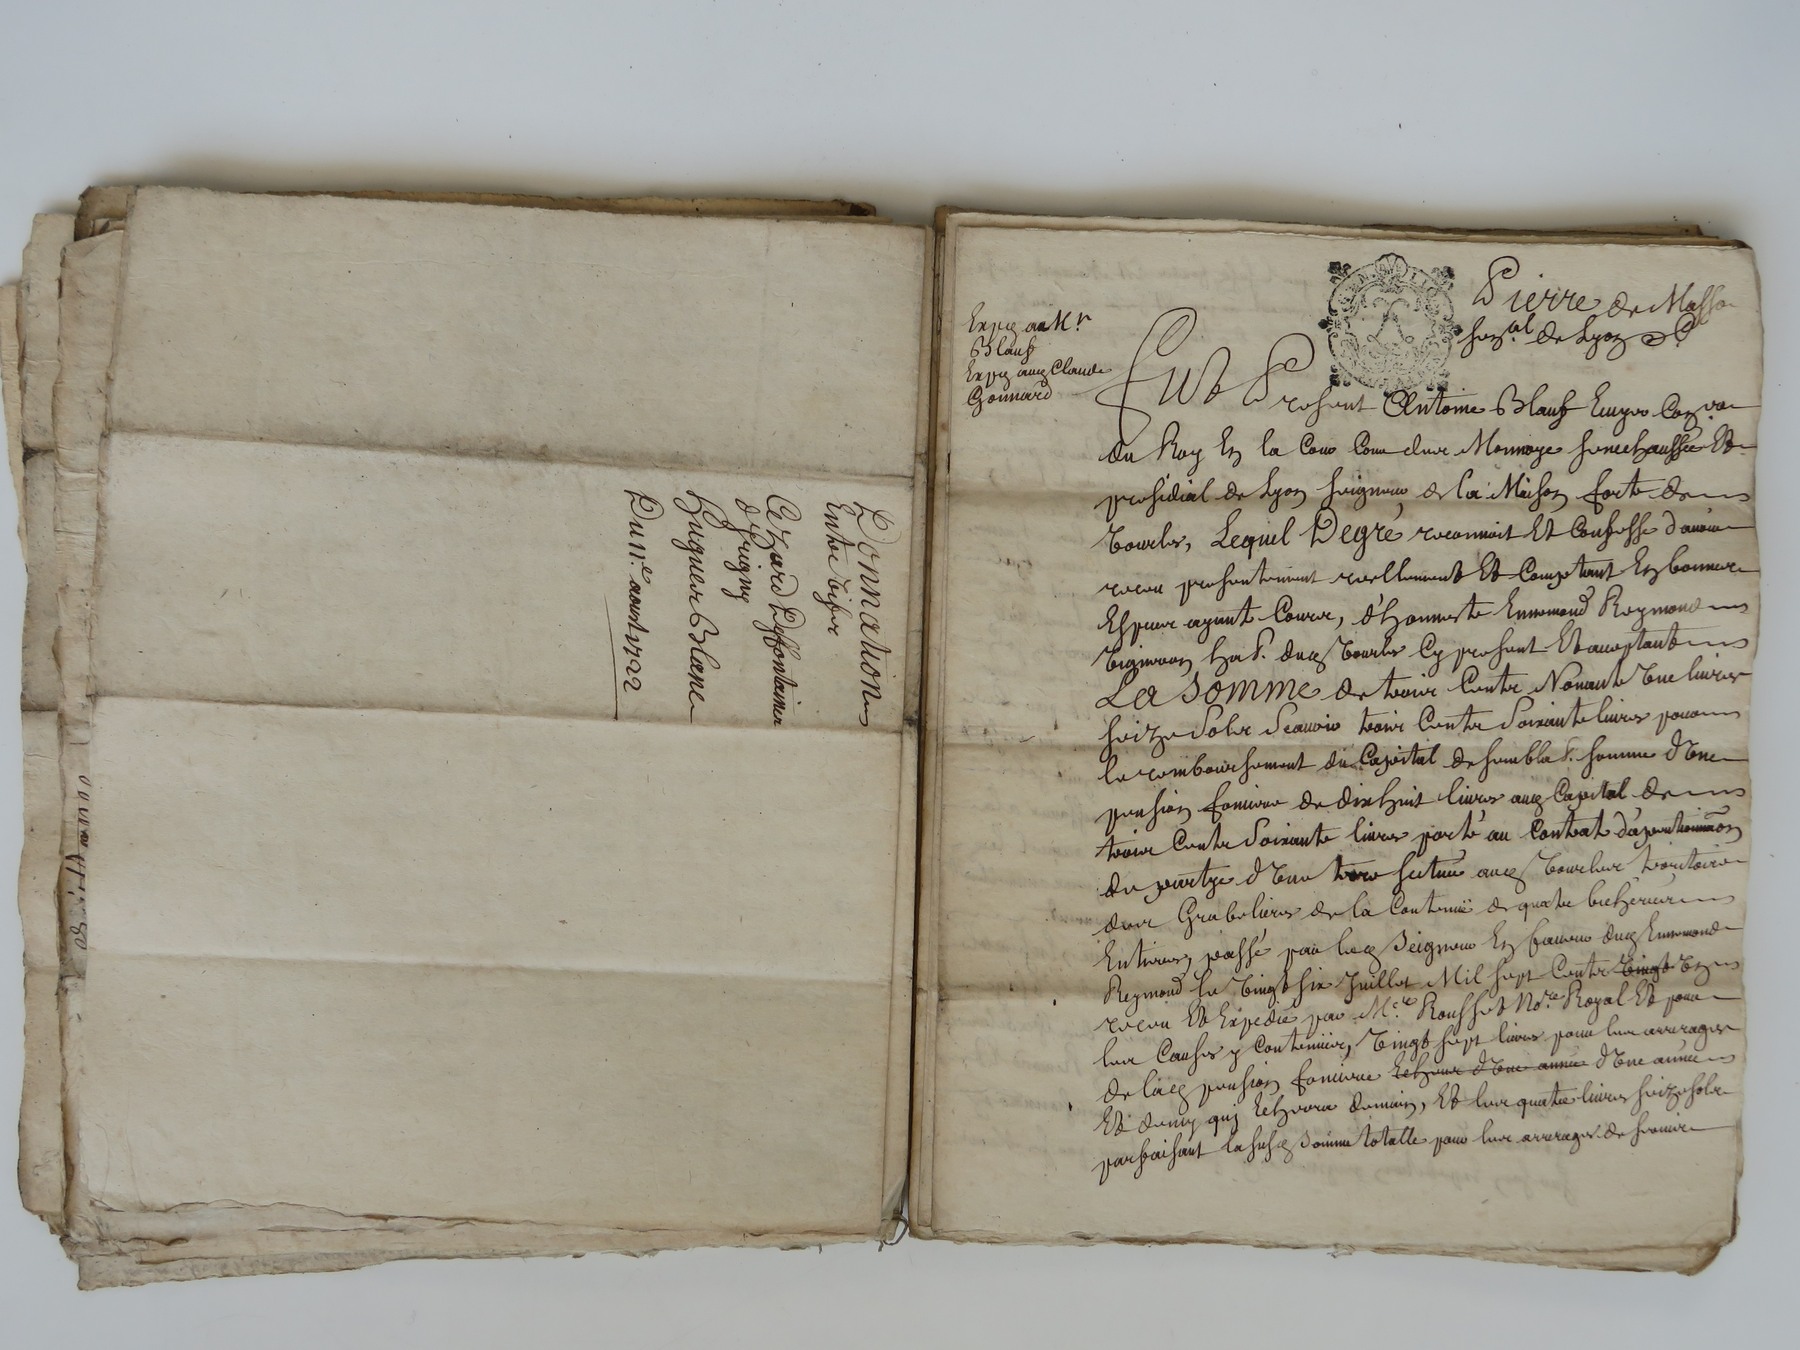 Donnation
Entre vifs
d'Irigny
Huguer Blanc
Du 11e aoust 1722
Expé au Sr
Blauf
Expé aud Claude
Gonnard
Pierre de Masso
senal de Lyon &
Fut Present Antoine Blauf Escuyer Conser
du Roy En la Cour des Monnoyes senechaussée Et
presidial de Lyon seigneur de la Maison forte de
Vourles, Lequel Degré reconnoit Et Confesse d'avoir
receu presentement reellement Et Comptant En bonnes
Espèces ayant Cours, d'honneste Ennemond Reymond
Vigneron hat. dud Vourles Cy present Et acceptant
La somme de trois Cents Nonante Une livres
seize sols sçavoir trois Cents soixante livres pour
le remboursement du Capital de semblable somme d'Une
pension fonciere de dix huit livres aud Capital de
trois Cents soixante livres porté au Contrat
de partye d'Une terre scituée aud Vourles territoire
des Grabelieres de la Contenüe de quatre bicherées
Entirons, passé par led Seigneur En faveur dud Ennemond
Reymond le Vingt six Juillet Mil sept Cents Vingt Un
receu Et Expedié par Me Rousset Nore Royal Et pour
les Causes y Contenües, Vingt sept livres pour les arrerages
de lad pension fonciere Echeus d'Une année d'Une année
Et demy quj Echerra demain, Et les quatre livres seize sols
parfaisant la susd somme totalle pour les arrerages de